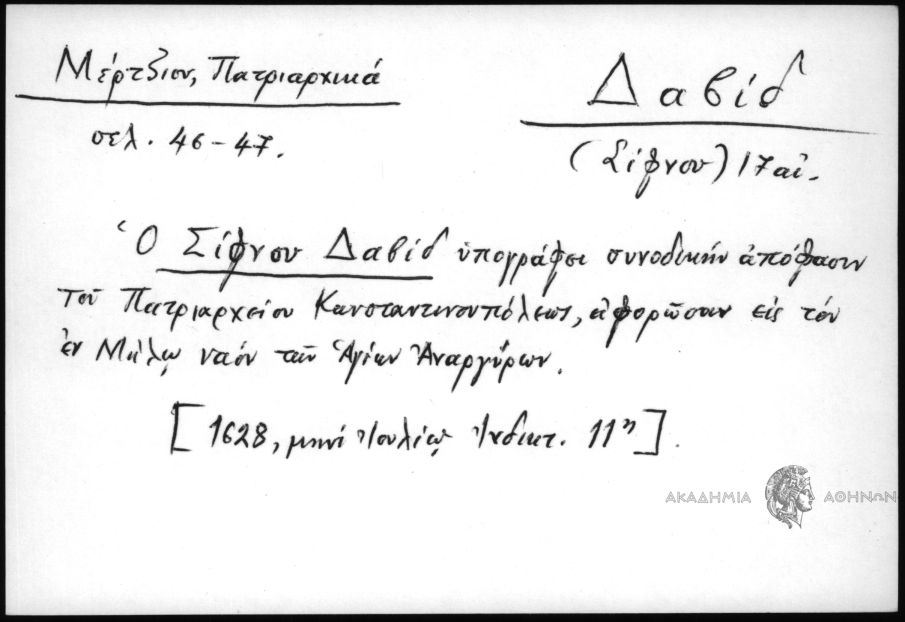 Μέρτζιου, Πατριαρχικά
σελ. 46-47.
Δαβίδ
(Σίφνου) 17 αἰ.
Ὁ Σίφνου Δαβίδ ὑπογράφει συνοδικήν ἀπόφασιν
τοῦ Πατριαρχείου Κωνσταντινουπόλεως, ἀφορῶσαν εἰς τόν
ἐν Μήλῳ ναόν τῶν Ἁγίων Ἀναργύρων.
[1628, μηνί Ἰουλίῳ Ἰνδικτ. 11η].
ΑΚΑΔΗΜΙΑ ΑΘΗΝΩΝ